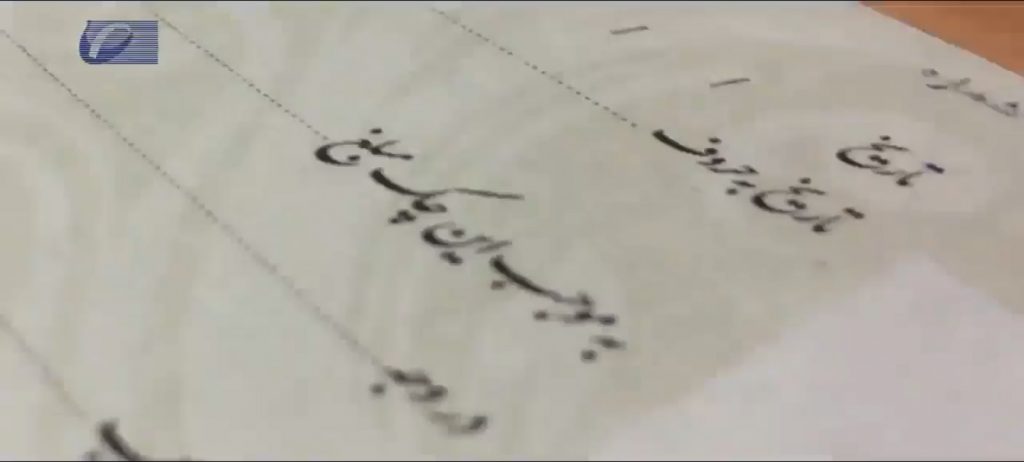 شماره
تاریخ / /
تاریخ بحروف
بموجب این چک مبلغ
در وجه